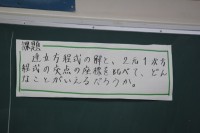 課題
連立方程式の解と、2元1次方
程式の交点の座標を比べて、どん
なことがいえるだろうか。